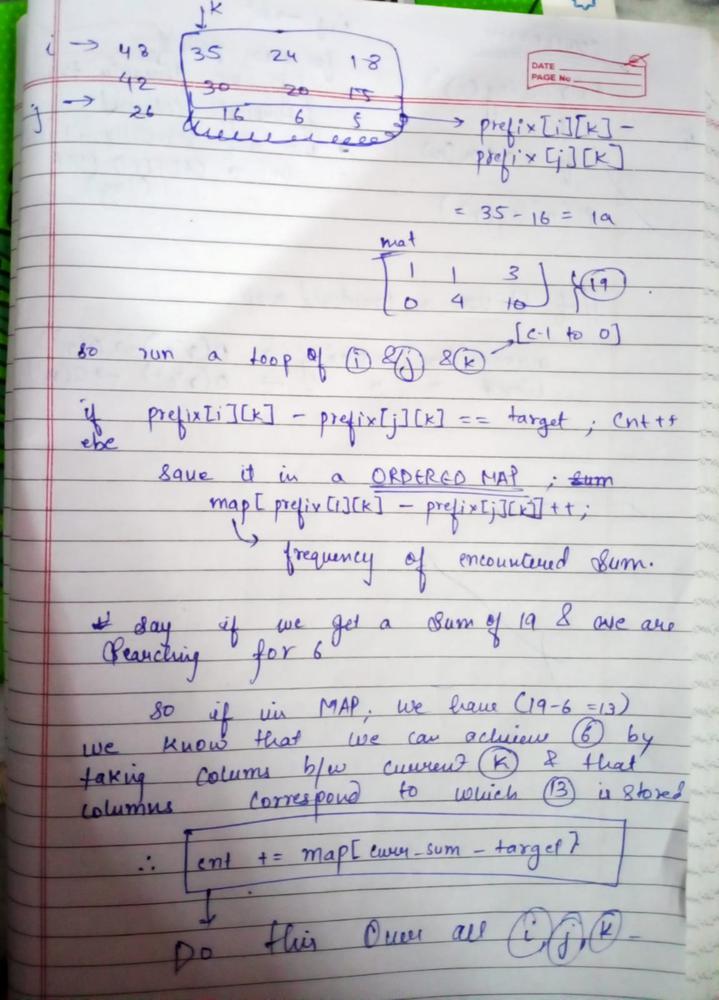 ↓K
DATE
PAGE No
i → 48 35 24 18
42 30 20 15
j → 26 16 6 5 → prefix[i][k] -
prefix[j][k]
= 35-16 = 19
mat
1 1 3
0 4 10 } 19
[c-1 to 0]
so run a loop of i & j & k
if prefix[i][k] - prefix[j][k] == target ; cnt++
else
save it in a ORDERED MAP ; sum
map[prefix[i][k] - prefix[j][k]]++;
frequency of encountered sum.
say if we get a sum of 19 & we are
searching for 6
so if in MAP, we have (19-6=13)
we know that we can achieve 6 by
taking colums b/w current K & that
columns correspond to which 13 is stored
∴ cnt += map[curr-sum - target]
Do this Over all i, j, k.